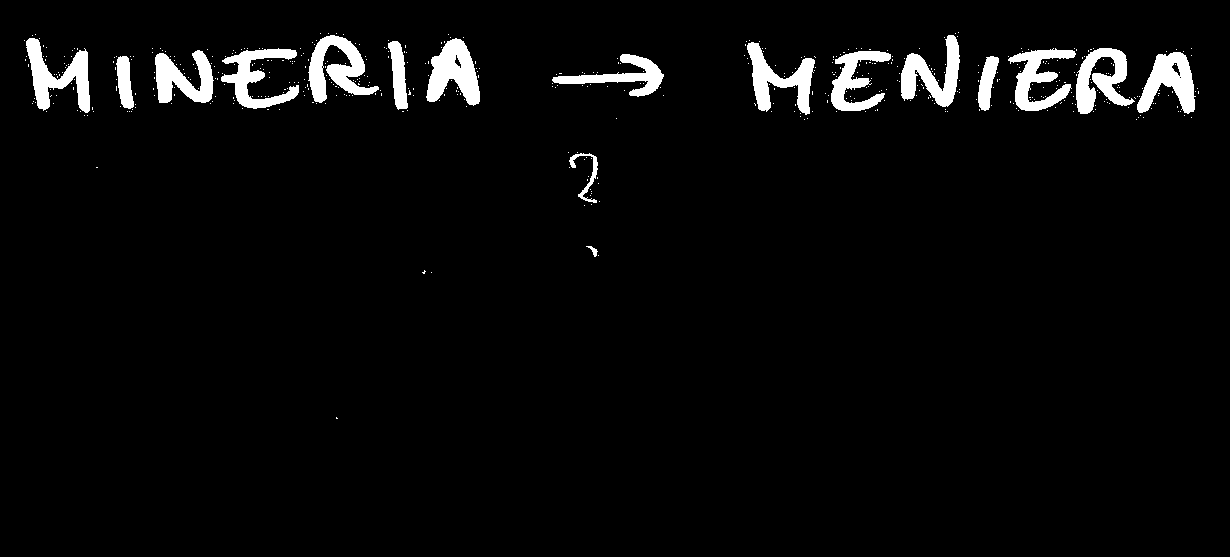 MINERIA → MENIERA
?